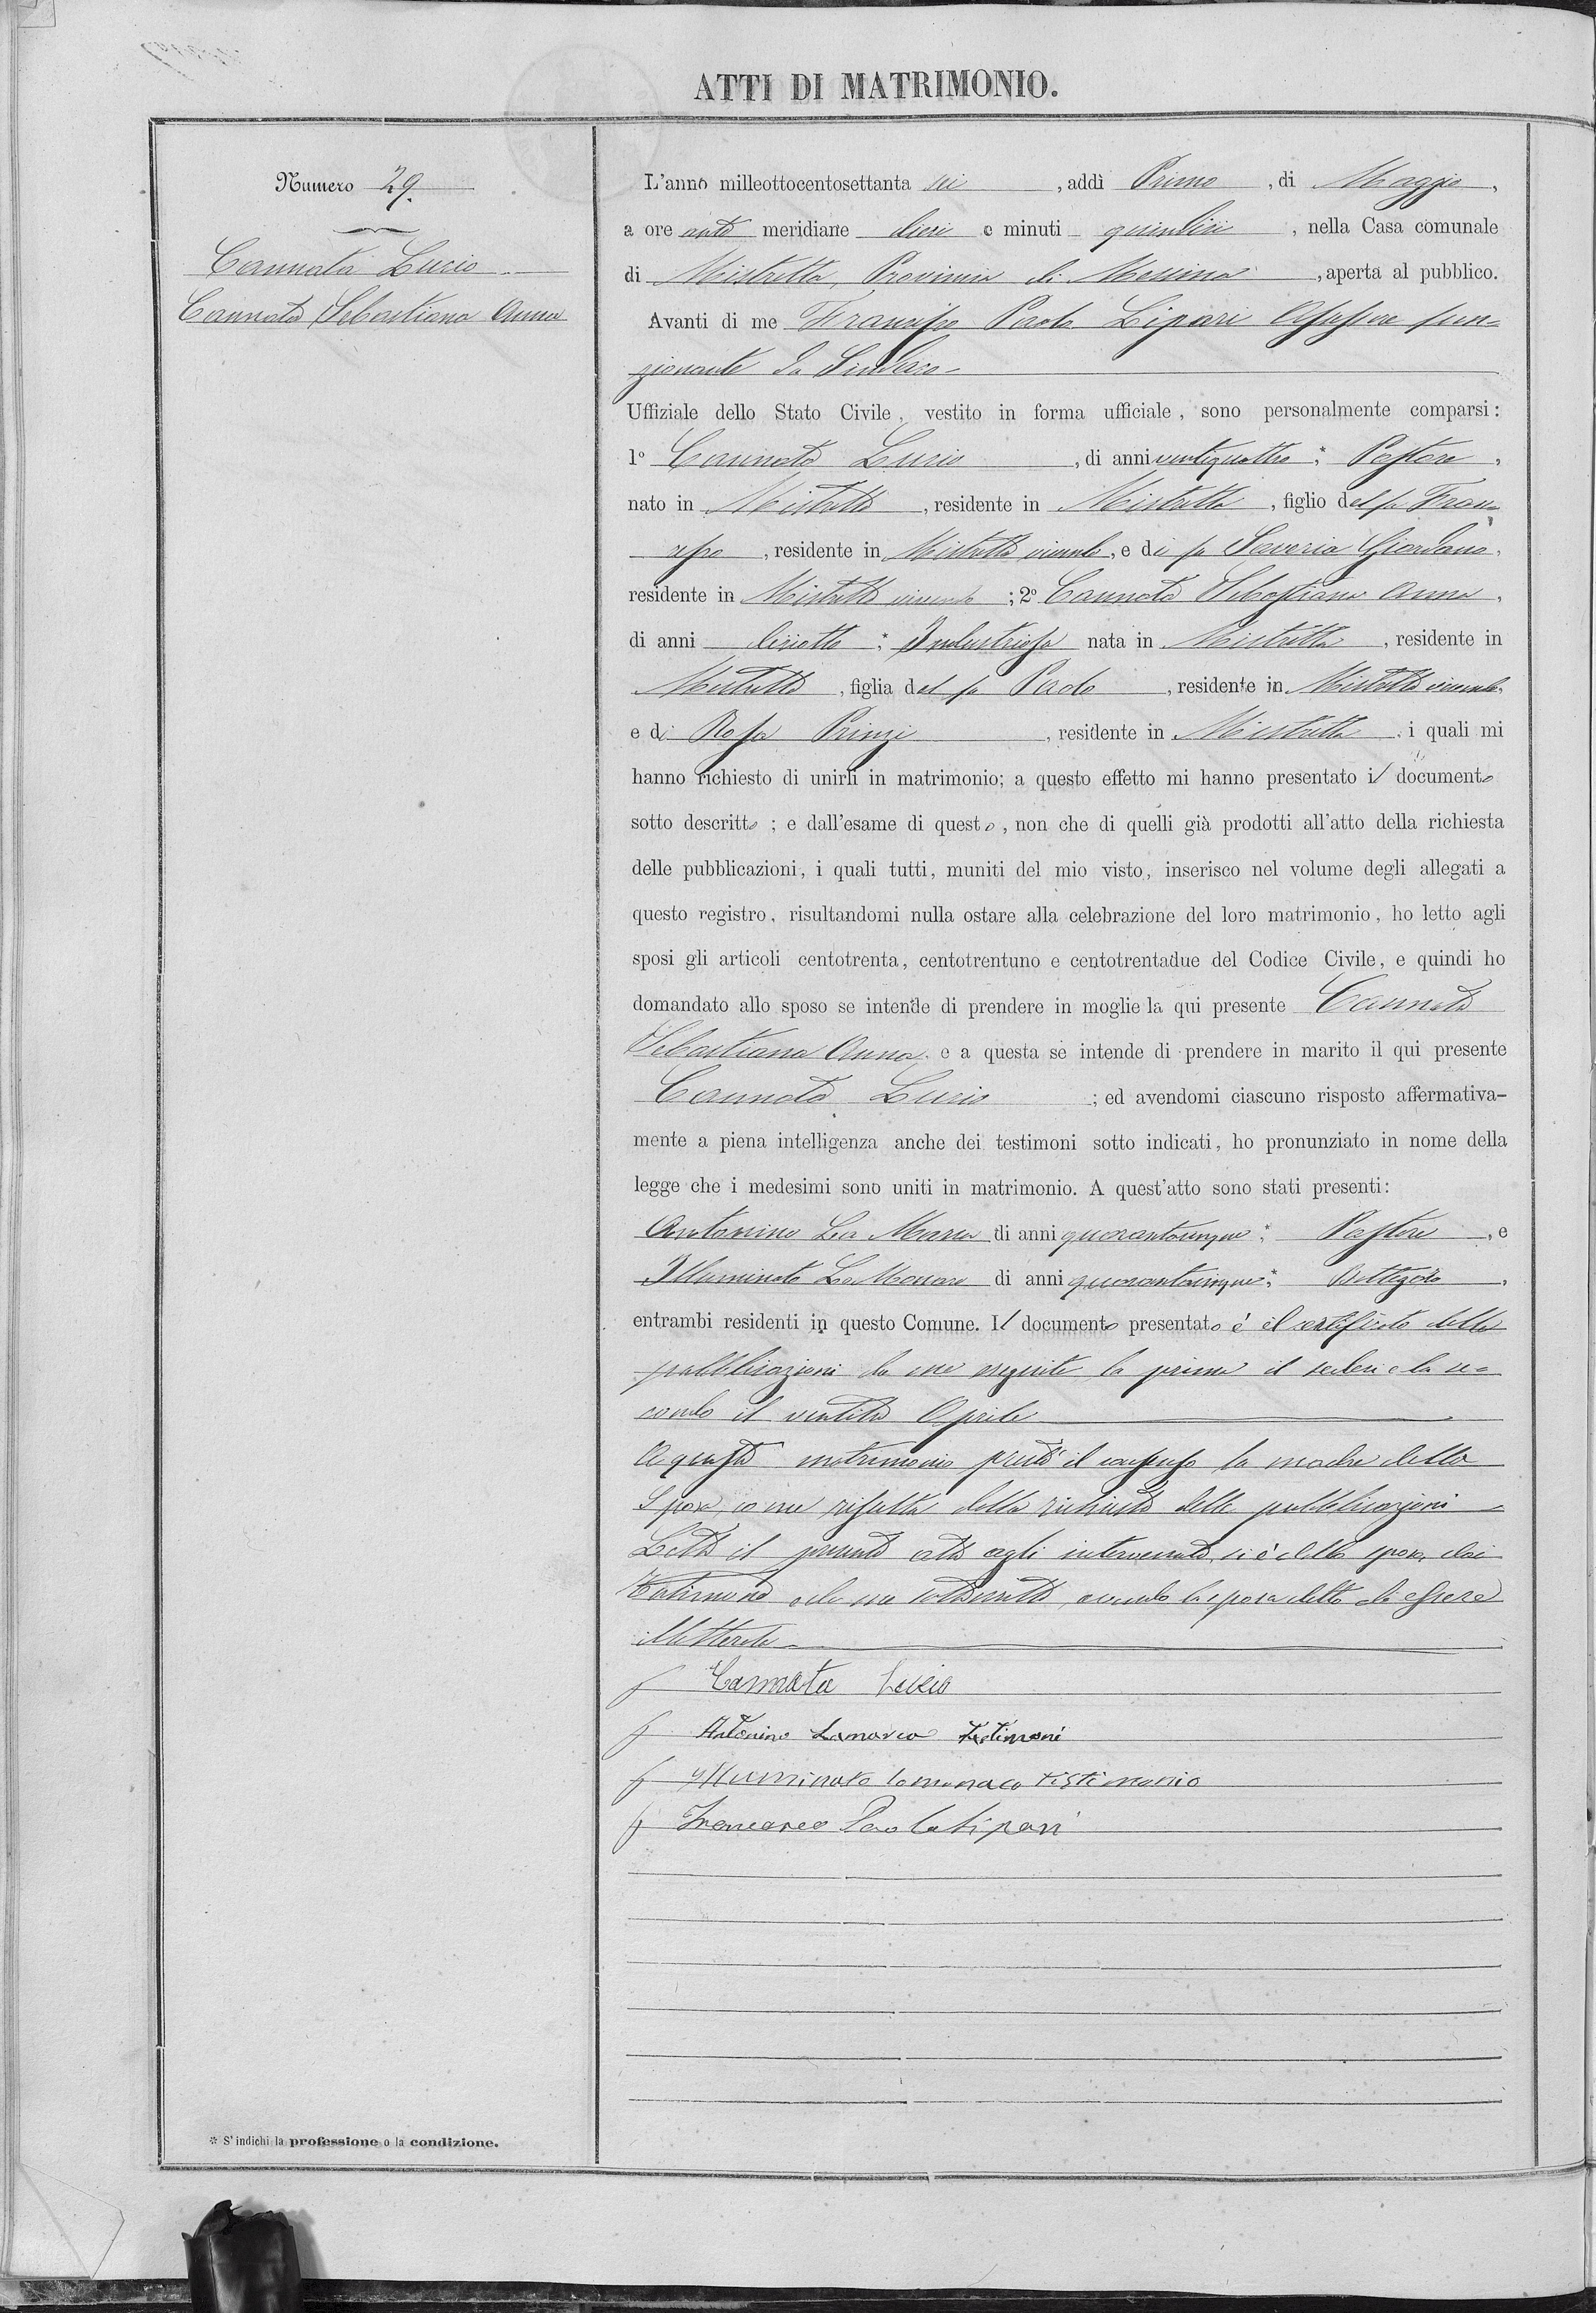 ATTI DI MATRIMONIO.
Numero 29.
Cannata Lucio
Cannata Sebastiana Anna
L'anno milleottocentosettanta sei, addì Primo, di Maggio,
a ore anti meridiane dieci e minuti quindici, nella Casa comunale
di Mistretta, Provincia di Messina, aperta al pubblico.
Avanti di me Francesco Paolo Lipari Assessore fun=
zionante da Sindaco
Uffiziale dello Stato Civile, vestito in forma ufficiale, sono personalmente comparsi:
1º Cannata Lucio, di anni ventiquattro;* Pastore,
nato in Mistretta, residente in Mistretta, figlio del fu Fran=
cesco, residente in Mistretta vivendo, e di fu Saveria Giordano,
residente in Mistretta vivendo; 2º Cannata Sebastiana Anna,
di anni diciotto;* Industriosa nata in Mistretta, residente in
Mistretta, figlia del fu Paolo, residente in Mistretta vivendo,
e di Rosa Prinzi, residente in Mistretta, i quali mi
hanno richiesto di unirli in matrimonio; a questo effetto mi hanno presentato il documento
sotto descritto; e dall'esame di questo, non che di quelli già prodotti all'atto della richiesta
delle pubblicazioni, i quali tutti, muniti del mio visto, inserisco nel volume degli allegati a
questo registro, risultandomi nulla ostare alla celebrazione del loro matrimonio, ho letto agli
sposi gli articoli centotrenta, centotrentuno e centotrentadue del Codice Civile, e quindi ho
domandato allo sposo se intende di prendere in moglie la qui presente Cannata
Sebastiana Anna, e a questa se intende di prendere in marito il qui presente
Cannata Lucio; ed avendomi ciascuno risposto affermativa-
mente a piena intelligenza anche dei testimoni sotto indicati, ho pronunziato in nome della
legge che i medesimi sono uniti in matrimonio. A quest'atto sono stati presenti:
Antonino La Marca di anni quarantacinque;* Pastore, e
Illuminato Lo Monaco di anni quarantacinque;* Bottegaio,
entrambi residenti in questo Comune. Il documento presentato è il certificato delle
pubblicazioni da me eseguite la prima il sedici e la se=
conda il ventitre Aprile
A questo matrimonio prestò il consenso la madre della
Sposa, come risulta dalla richiesta delle pubblicazioni
Letto il presente atto agli intervenuti, si è dallo sposo, dai
Testimoni e da me sottoscritto, avendo la sposa detto di essere
illetterata
f Cannata Lucio
f Antonino Lamarca Testimoni
f Illuminato lomonaco tistimonio
f Francesco Paolo Lipari
* S'indichi la professione o la condizione.